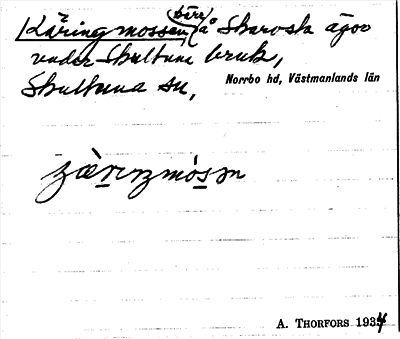 Käringmossen (bära) å Skarosta ägor
under Skultuna bruk,
Skultuna sn, Norrbo hd, Västmanlands län
A. THORFORS 1934